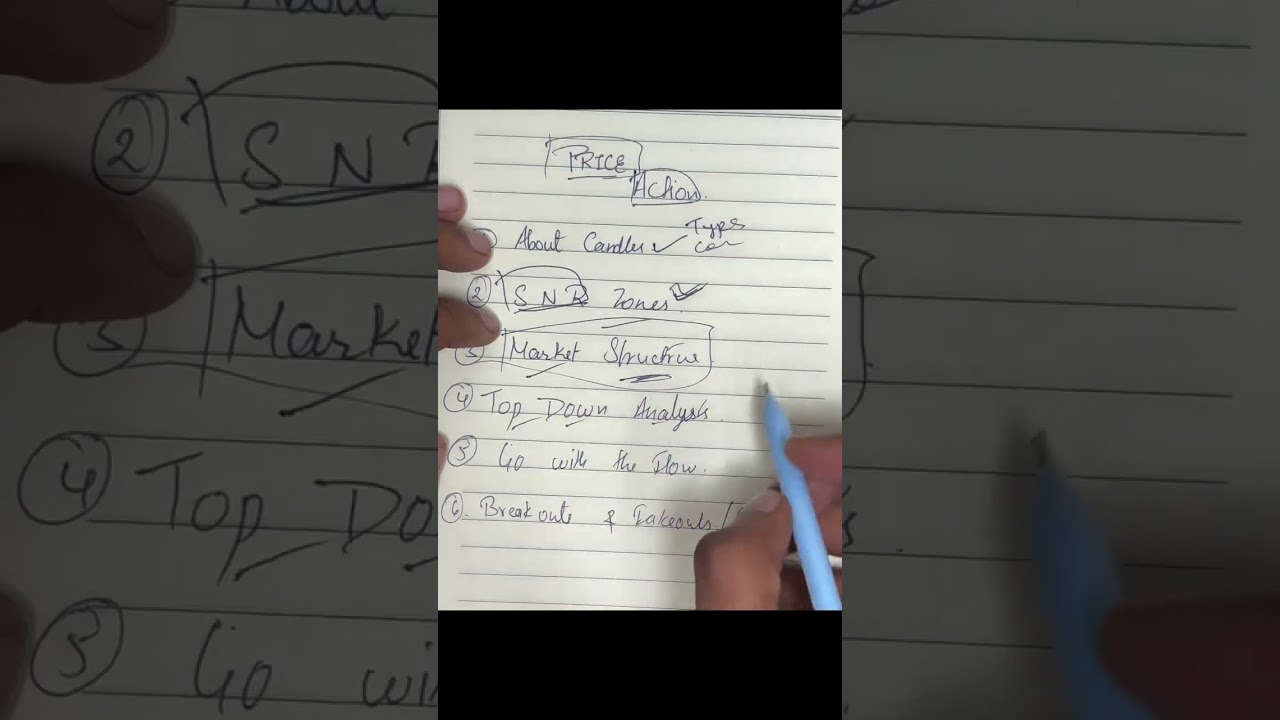 PRICE
Action.
① About Candles ✓ Types
② SNR Zones. ✓
③ Market Structure
④ Top Down Analysis.
⑤ Go with the Flow.
⑥. Breakouts & Fakeouts. /